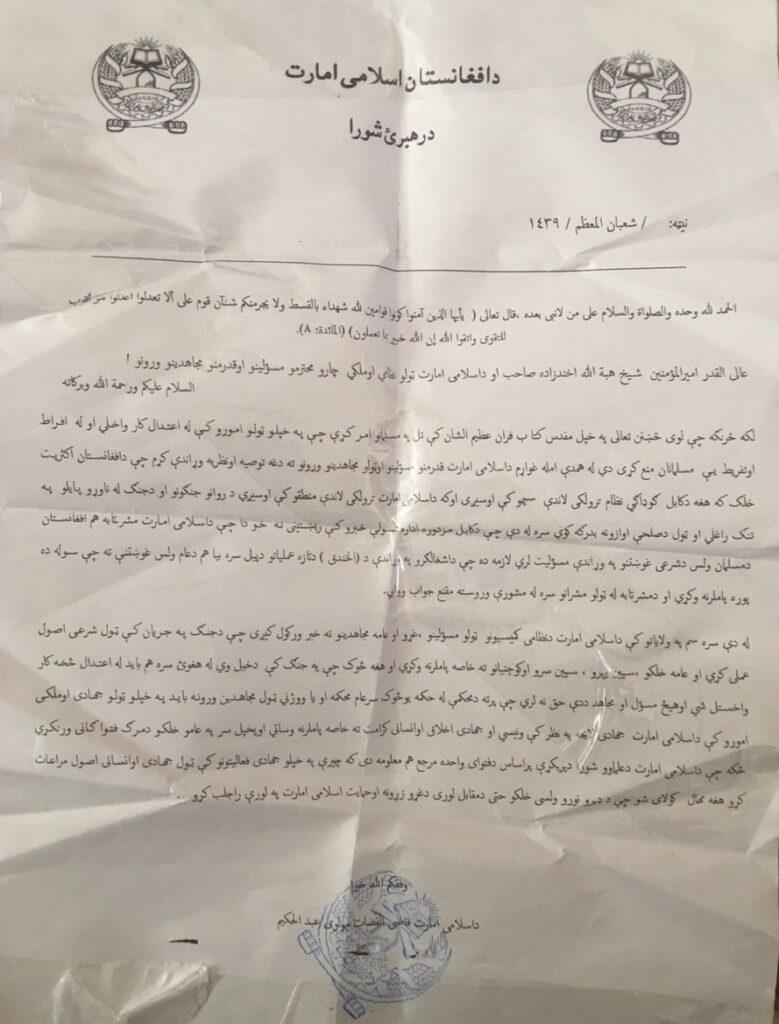 دافغانستان اسلامی امارت
درهبرئ شورا
نیټه: / شعبان المعظم / ۱۴۳۹
الحمد لله وحده والصلواة والسلام علی من لانبی بعده ،قال تعالی ( یأیها الذین آمنوا کونوا قوامین لله شهداء بالقسط ولا یجرمنکم شنآن قوم علی ألا تعدلوا اعدلوا هو اقرب
للتقوی واتقوا الله إن الله خبیر بما تعملون) (المائدة: ۸).
عالی القدر امیرالمؤمنین شیخ هبة الله اخندزاده صاحب او داسلامی امارت ټولو نظامي اوملکي چارو محترمو مسؤلینو اوقدرمنو مجاهدینو ورونو !
السلام علیکم ورحمة الله وبرکاته
لکه څرنګه چې لوی څښتن تعالی په خپل مقدس کتا ب قران عظیم الشان کې تل په مسلمانو امر کړې چې په خپلو ټولو امورو کې له اعتدال کار واخلي او له افراط
اوتفریط یې مسلمانان منع کړی دي له همدې امله غواړم داسلامی امارت قدرمنو مسؤلینو اوټولو مجاهدینو ورونو ته دغه توصیه اونظریه وړاندې کړم چې دافغانستان اکثریت
خلک که هغه دکابل ګوډاګي نظام ترولکی لاندې سیمو کې اوسیږی اوکه داسلامی امارت ترولکی لاندې منطقو کې اوسیږي د روانو جنګونو او دجنګ له ناوړو پایلو په
تنګ راغلي او ټول دصلحې اوازونه بدرګه کوي سره له دې چې دکابل مزدوره اداره سولې خبرو کې رښتینی نه خو دا چې داسلامی امارت مشرتابه هم افغانستان
دمسلمان ولس دشرعی غوښتنو په وړاندې مسؤلیت لري لازمه ده چې داشغالګرو په وړاندې د (الخندق ) دتازه عملیاتو دپیل سره بیا هم دعام ولس غوښتنې ته چې سوله ده
پوره پاملرنه وکړي او دمشرتابه له ټولو مشرانو سره له مشورې وروسته مقنع جواب ووایي.
له دې سره سم په ولایاتو کې داسلامی امارت دنظامی کمیسیونو ټولو مسؤلینو ،غړو او عامه مجاهدینو ته خبر ورکول کیږی چې دجنګ په جریان کې ټول شرعی اصول
عملي کړي او عامه خلکو ،سپین ږیرو ، سپین سرو اوکوچنیانو ته خاصه پاملرنه وکړي او هغه څوک چې په جنګ کې دخیل وي له هغوئ سره هم باید له اعتدال څخه کار
واخستل شي اوهیڅ مسؤل او مجاهد ددې حق نه لري چې پرته دمحکمې له حکمه یوڅوک سرعام محکمه او یا ووژني ټول مجاهدین ورونه باید په خپلو ټولو جهادی اوملکی
امورو کې داسلامی امارت جهادی لایحه په نظر کې ونیسي او جهادی اخلاق اوانسانی کرامت ته خاصه پاملرنه وساتي اوپخپل سر په عامو خلکو دمرګ فتواګانی ورنکړي
ځکه چې داسلامی امارت دعلماوو شورا دپریکړې پراساس دفتوای واحده مرجع هم معلومه دی که چیرې په خپلو جهادی فعالیتونو کې ټول جهادی اوانسانی اصول مراعات
کړو هغه مهال کولای شو چې د ډېرو نورو ولسی خلکو حتی دمقابل لوری دغړو زړونه اوحمایت اسلامی امارت په لورې راجلب کړو .
وفقکم الله خیرا
داسلامی امارت قاضی القضات مولوی عبد الحکیم